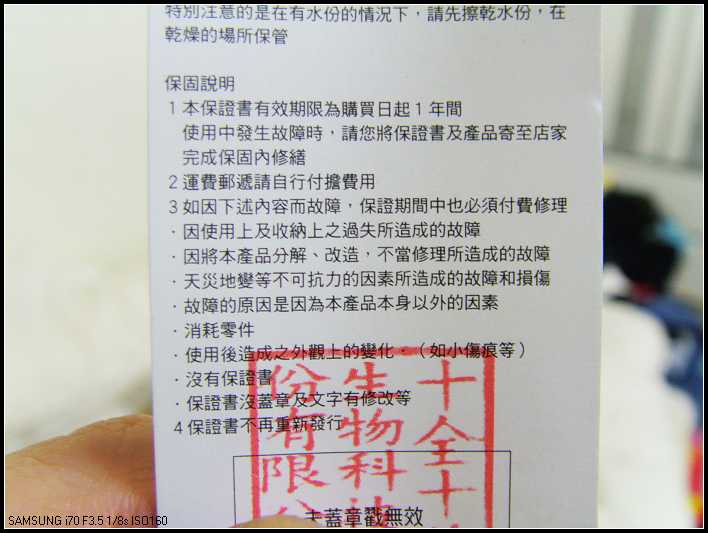 特別注意的是在有水份的情況下，請先擦乾水份，在
乾燥的場所保管
保固說明
1 本保證書有效期限為購買日起 1 年間
使用中發生故障時，請您將保證書及產品寄至店家
完成保固內修繕
2 運費郵遞請自行付擔費用
3 如因下述內容而故障，保證期間中也必須付費修理
．因使用上及收納上之過失所造成的故障
．因將本產品分解、改造，不當修理所造成的故障
．天災地變等不可抗力的因素所造成的故障和損傷
．故障的原因是因為本產品本身以外的因素
．消耗零件
．使用後造成之外觀上的變化。（如小傷痕等）
．沒有保證書
．保證書沒蓋章及文字有修改等
4 保證書不再重新發行
十全十
生物科技
份有限公
未蓋章戳無效
SAMSUNG i70 F3.5 1/8s ISO160